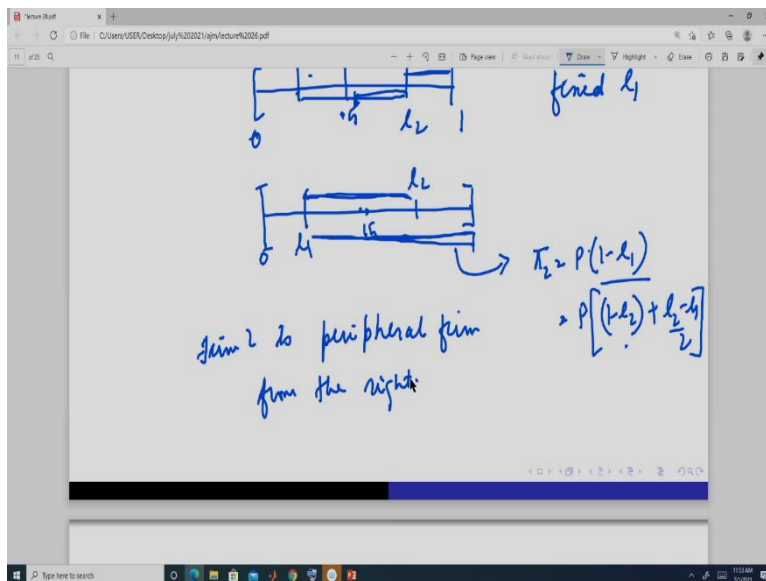 *lecture 26.pdf
File | C:/Users/USER/Desktop/july%202021/ajm/lecture%2026.pdf
11 of 25
Page view | Read aloud | Draw | Highlight | Erase
.5 l2 1
0
fixed l1
l2
0 l1 .5
π2 = P.(1-l1)
= P[(1-l2) + l2-l1/2]
Firm 2 is peripheral firm
from the right.
Type here to search
11:53 AM